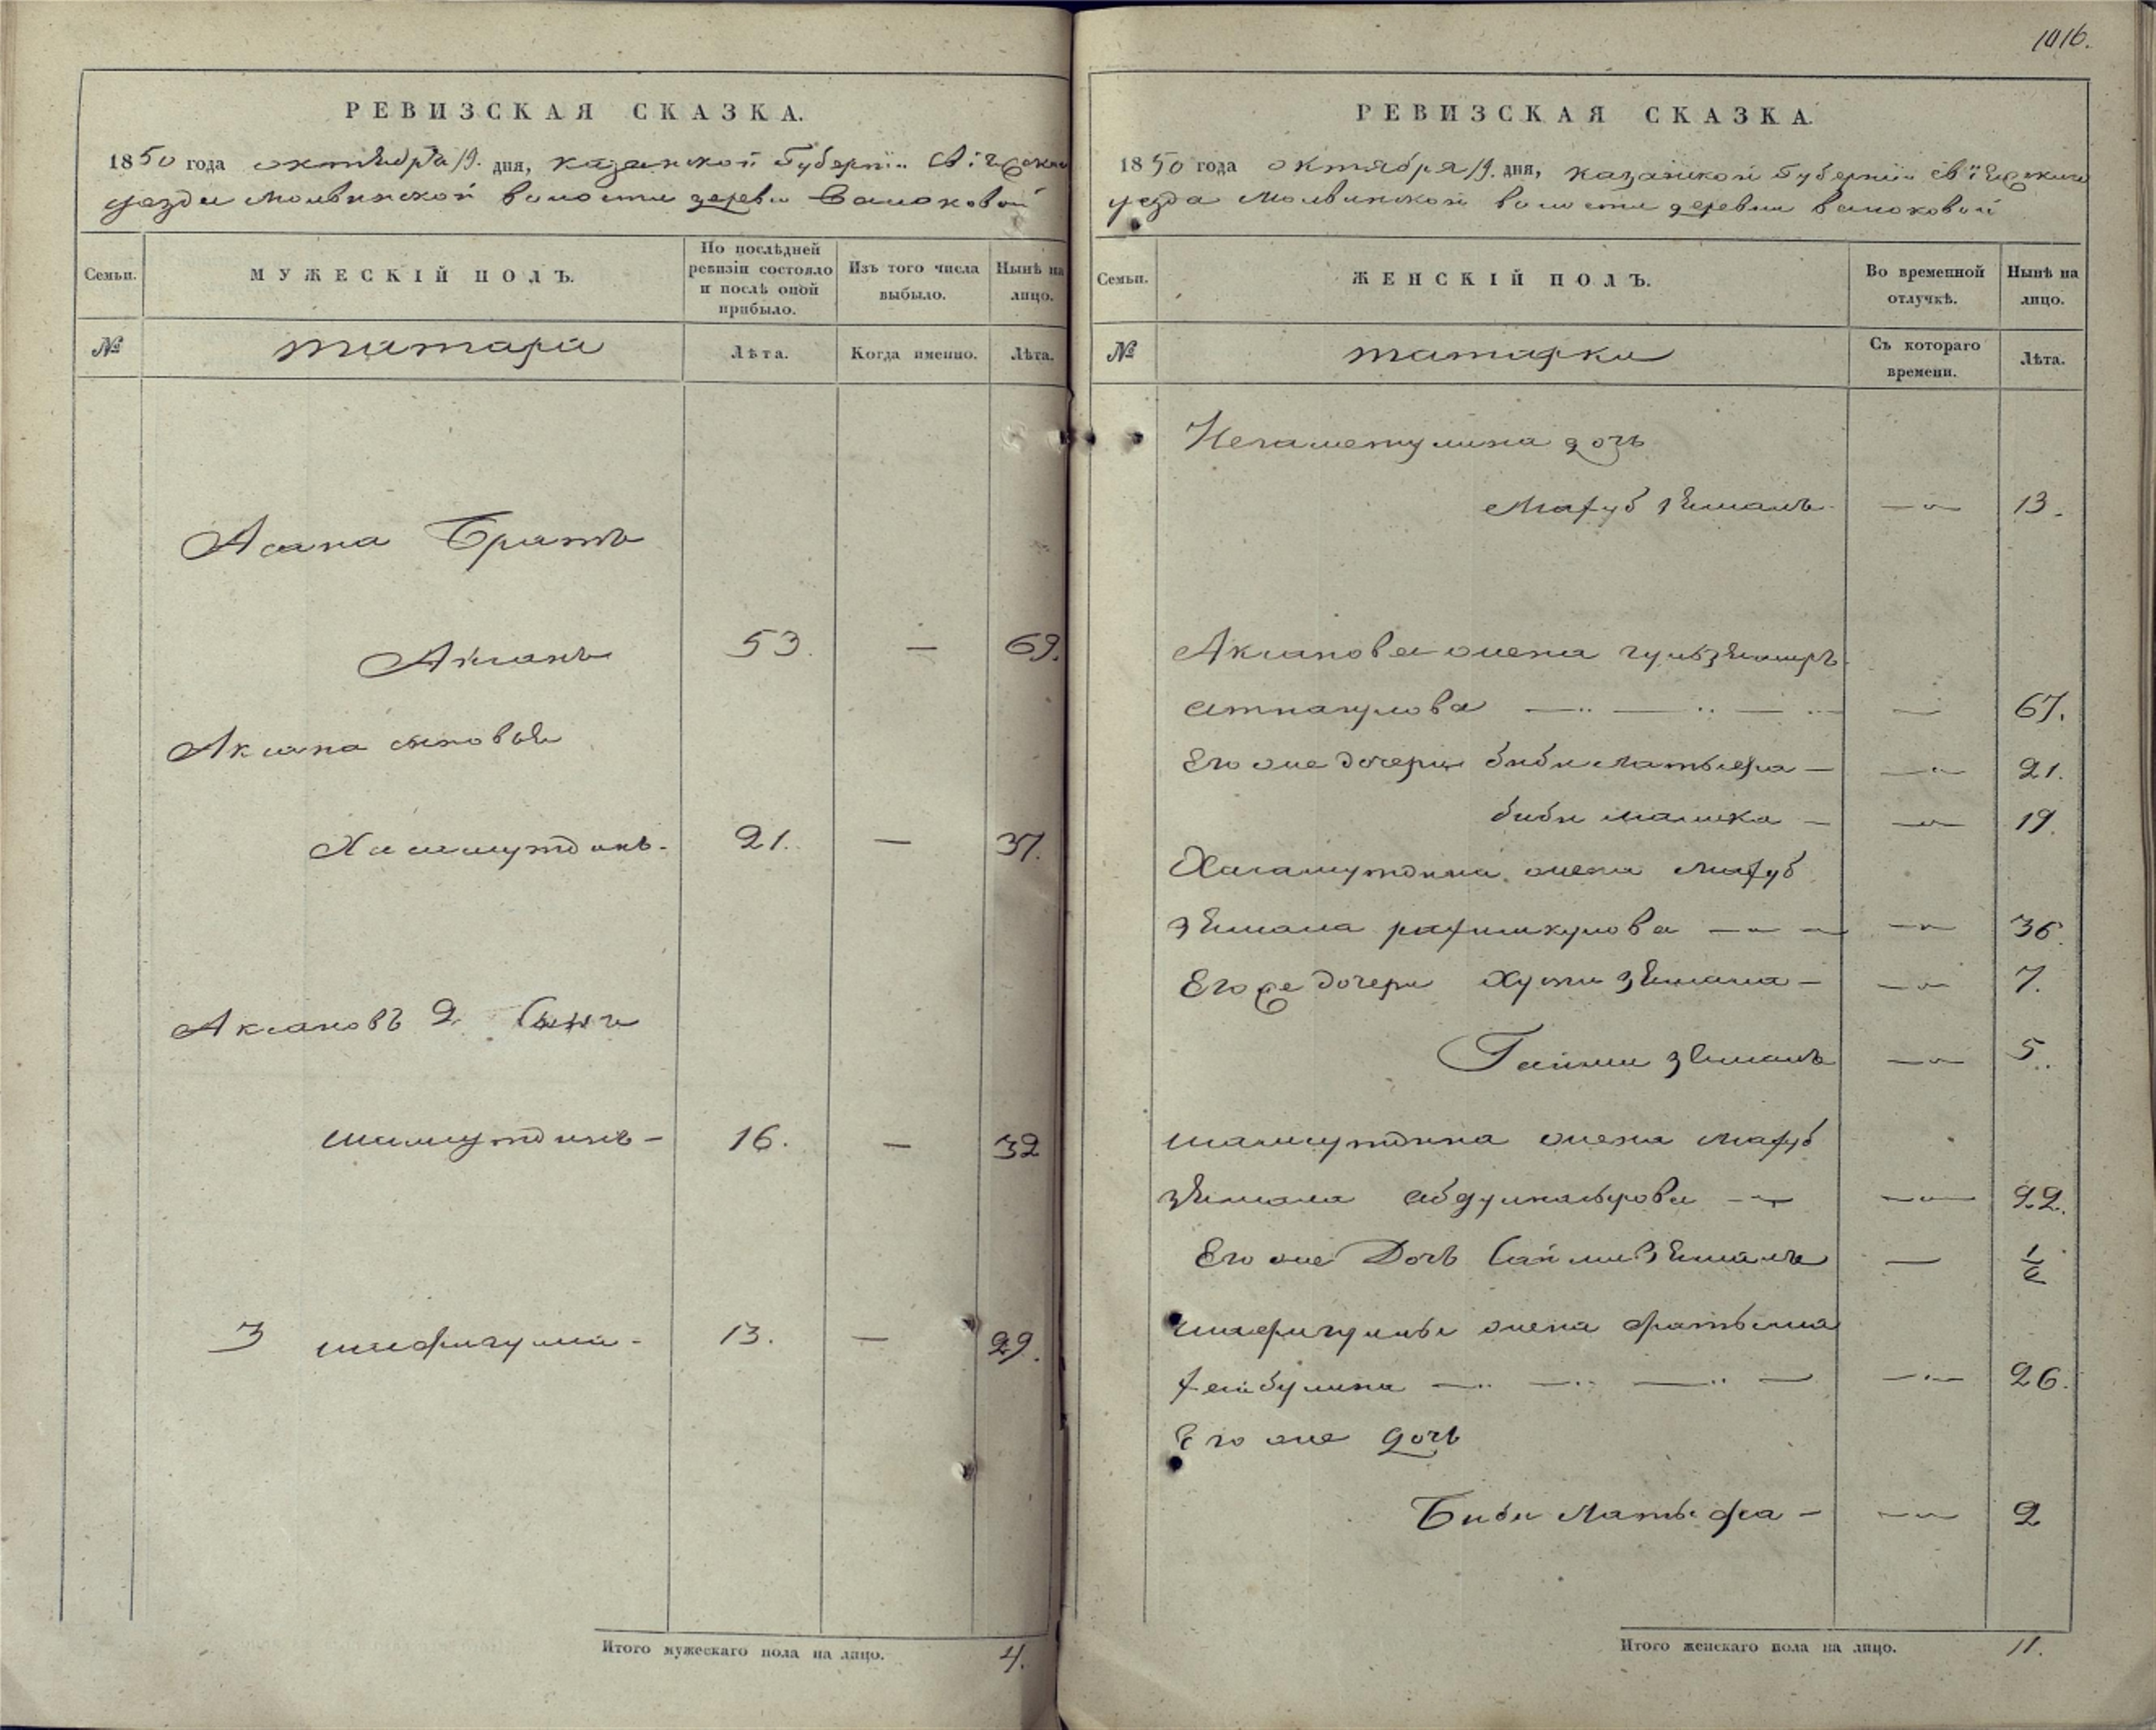 РЕВИЗСКАЯ СКАЗКА.
1850 года октября 19. дня, казанской Губернiи Свiяжскаго
уезда Мольвинской волости деревни
Семьи.
МУЖЕСКІЙ ПОЛЪ.
По послѣдней ревизіи состояло и послѣ оной прибыло.
Изъ того числа выбыло.
Нынѣ на лицо.
№
татара
Лѣта.
Когда именно.
Лѣта.
Асана Братъ
Аксанъ 53. — 69.
Аксана сыновья
Хисамутдинъ - 21. — 37.
Аксановъ 2. сынъ
шамсутдинъ - 16. — 32
3 шафигулла - 13. — 29.
Итого мужескаго пола на лицо. 4.
1016.
РЕВИЗСКАЯ СКАЗКА.
1850 года октября 19. дня, казанской Губернiи Свiяжскаго
уезда Мольвинской волости деревни
Семьи.
ЖЕНСКІЙ ПОЛЪ.
Во временной отлучкѣ.
Нынѣ на лицо.
№
татарки
Съ котораго времени.
Лѣта.
Негаметулина дочь
Махуб зямаль — 13.
Аксанова жена
— 67.
Его же дочери биби латыфа — — 21.
биби малика — — 19.
Хисамутдина жена махуб
зямала рахимкулова — — 36.
Его же дочери Хусни зямала — — 7.
зямаль — 5.
шамсутдина жена махуб
зямала — 22.
Его же Дочь зямаль — 1/2
шафигуллы жена фатыма
— 26.
Его же дочь
Биби Латыфа — — 2
Итого женскаго пола на лицо. 11.